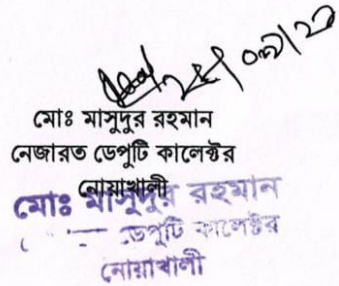 মোঃ মাসুদুর রহমান
নেজারত ডেপুটি কালেক্টর
নোয়াখালী
মোঃ মাসুদুর রহমান
ডেপুটি কালেক্টর
নোয়াখালী